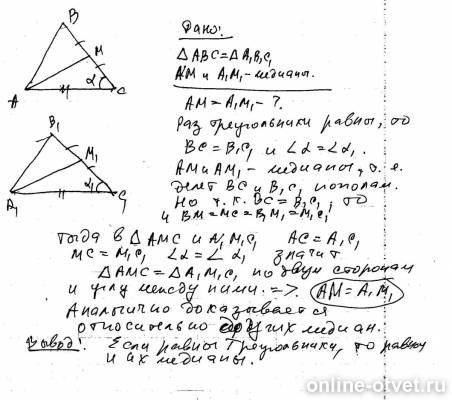 B
M
α
A
C
B₁
M₁
α₁
A₁
C₁
Дано:
△ABC = △A₁B₁C₁
AM и A₁M₁ - медианы.
AM = A₁M₁ - ?
Раз треугольники равны, то
BC = B₁C₁ и ∠α = ∠α₁.
AM и AM₁ - медианы, т. е.
делят BC и B₁C₁ пополам.
Но т. к. BC = B₁C₁, то
и BM = MC = B₁M₁ = M₁C₁
Тогда в △AMC и A₁M₁C₁ AC = A₁C₁
MC = M₁C₁ ∠α = ∠α₁ значит
△AMC = △A₁M₁C₁ по двум сторонам
и углу между ними. => AM = A₁M₁
Аналогично доказывается
относительно других медиан.
Вывод: Если равны треугольники, то равны
и их медианы.
online-otvet.ru